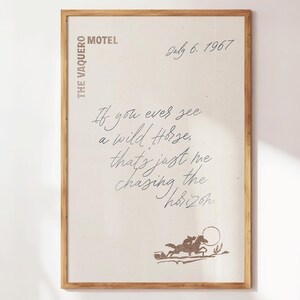 THE VAQUERO MOTEL
July 6, 1967
If you ever see
a wild Horse,
that's just me
chasing the
horizon